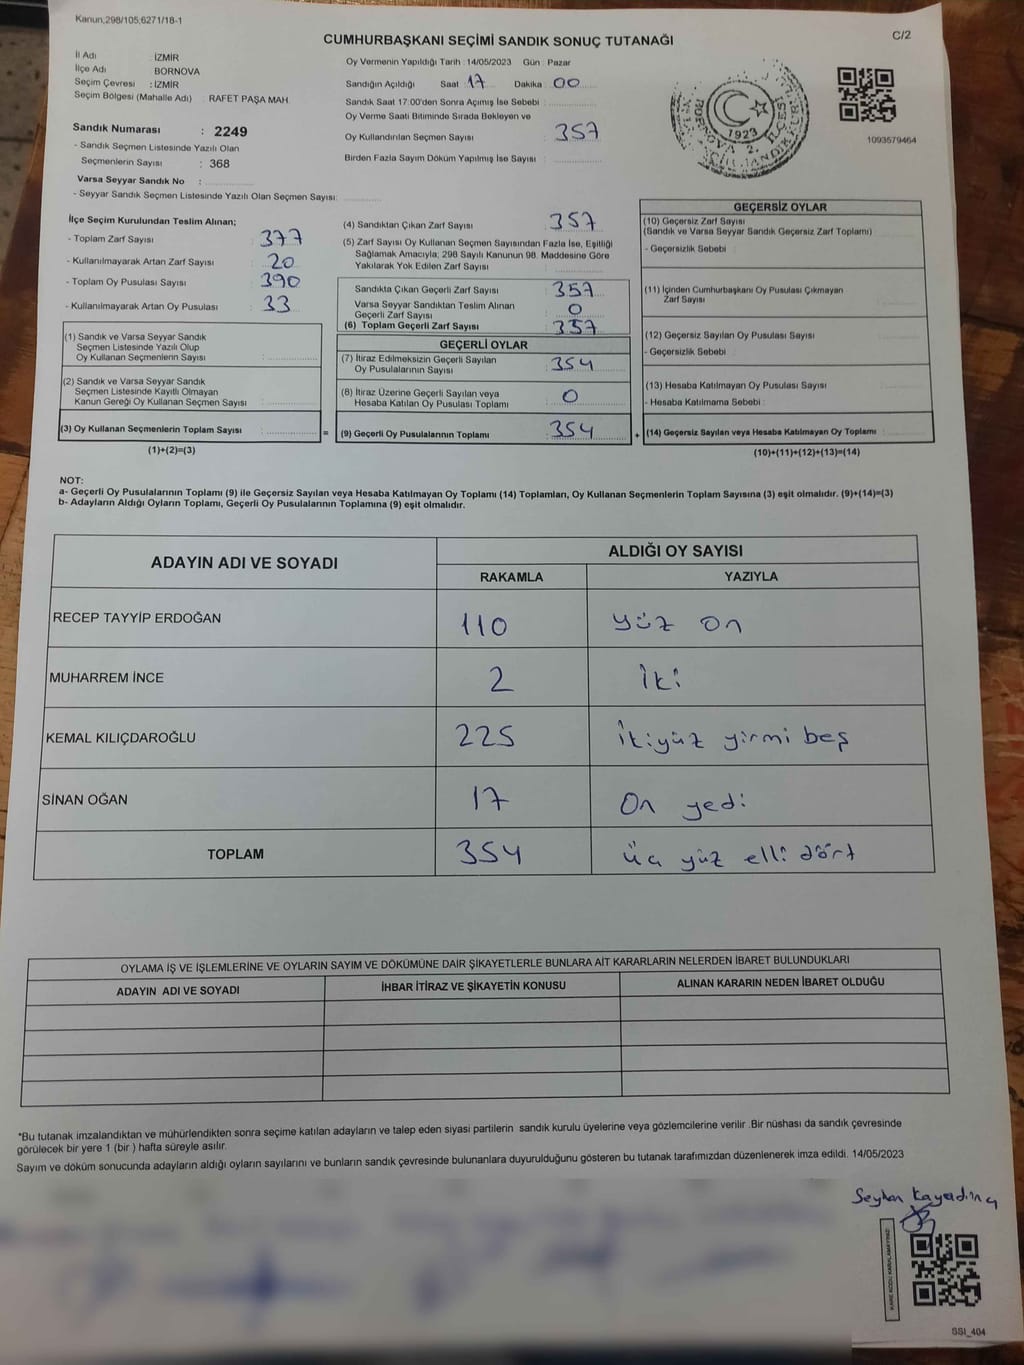 Kanun,298/105,6271/18-1
C/2
CUMHURBAŞKANI SEÇİMİ SANDIK SONUÇ TUTANAĞI
İl Adı : İZMİR
İlçe Adı BORNOVA
Seçim Çevresi : İZMİR
Seçim Bölgesi (Mahalle Adı) : RAFET PAŞA MAH.
Sandık Numarası : 2249
- Sandık Seçmen Listesinde Yazılı Olan
Seçmenlerin Sayısı : 368
Varsa Seyyar Sandık No :
- Seyyar Sandık Seçmen Listesinde Yazılı Olan Seçmen Sayısı:
Oy Vermenin Yapıldığı Tarih : 14/05/2023 Gün : Pazar
Sandığın Açıldığı Saat 17 Dakika : 00
Sandık Saat 17:00'den Sonra Açımış İse Sebebi :
Oy Verme Saati Bitiminde Sırada Bekleyen ve
Oy Kullandırılan Seçmen Sayısı : 357
Birden Fazla Sayım Döküm Yapılmış İse Sayısı :
1923
1093579464
İlçe Seçim Kurulundan Teslim Alınan;
- Toplam Zarf Sayısı : 377
- Kullanılmayarak Artan Zarf Sayısı : 20
- Toplam Oy Pusulası Sayısı : 390
- Kullanılmayarak Artan Oy Pusulası : 33
(1) Sandık ve Varsa Seyyar Sandık
Seçmen Listesinde Yazılı Olup
Oy Kullanan Seçmenlerin Sayısı :
(2) Sandık ve Varsa Seyyar Sandık
Seçmen Listesinde Kayıtlı Olmayan
Kanun Gereği Oy Kullanan Seçmen Sayısı :
(3) Oy Kullanan Seçmenlerin Toplam Sayısı : =
(1)+(2)=(3)
(4) Sandıktan Çıkan Zarf Sayısı : 357
(5) Zarf Sayısı Oy Kullanan Seçmen Sayısından Fazla İse, Eşitliği
Sağlamak Amacıyla; 298 Sayılı Kanunun 98. Maddesine Göre
Yakılarak Yok Edilen Zarf Sayısı :
Sandıkta Çıkan Geçerli Zarf Sayısı : 357
Varsa Seyyar Sandıktan Teslim Alınan
Geçerli Zarf Sayısı : 0
(6) Toplam Geçerli Zarf Sayısı : 357
GEÇERLİ OYLAR
(7) İtiraz Edilmeksizin Geçerli Sayılan
Oy Pusulalarının Sayısı : 354
(8) İtiraz Üzerine Geçerli Sayılan veya
Hesaba Katılan Oy Pusulası Toplamı : 0
(9) Geçerli Oy Pusulalarının Toplamı : 354 +
GEÇERSİZ OYLAR
(10) Geçersiz Zarf Sayısı
(Sandık ve Varsa Seyyar Sandık Geçersiz Zarf Toplamı)
- Geçersizlik Sebebi :
(11) İçinden Cumhurbaşkanı Oy Pusulası Çıkmayan
Zarf Sayısı
(12) Geçersiz Sayılan Oy Pusulası Sayısı
- Geçersizlik Sebebi :
(13) Hesaba Katılmayan Oy Pusulası Sayısı
- Hesaba Katılmama Sebebi :
(14) Geçersiz Sayılan veya Hesaba Katılmayan Oy Toplamı :
(10)+(11)+(12)+(13)=(14)
NOT:
a- Geçerli Oy Pusulalarının Toplamı (9) ile Geçersiz Sayılan veya Hesaba Katılmayan Oy Toplamı (14) Toplamları, Oy Kullanan Seçmenlerin Toplam Sayısına (3) eşit olmalıdır. (9)+(14)=(3)
b- Adayların Aldığı Oyların Toplamı, Geçerli Oy Pusulalarının Toplamına (9) eşit olmalıdır.
ADAYIN ADI VE SOYADI
ALDIĞI OY SAYISI
RAKAMLA YAZIYLA
RECEP TAYYİP ERDOĞAN 110 yüz on
MUHARREM İNCE 2 iki
KEMAL KILIÇDAROĞLU 225 ikiyüz yirmi beş
SİNAN OĞAN 17 on yedi
TOPLAM 354 üç yüz elli dört
OYLAMA İŞ VE İŞLEMLERİNE VE OYLARIN SAYIM VE DÖKÜMÜNE DAİR ŞİKAYETLERLE BUNLARA AİT KARARLARIN NELERDEN İBARET BULUNDUKLARI
ADAYIN ADI VE SOYADI İHBAR İTİRAZ VE ŞİKAYETİN KONUSU ALINAN KARARIN NEDEN İBARET OLDUĞU
*Bu tutanak imzalandıktan ve mühürlendikten sonra seçime katılan adayların ve talep eden siyasi partilerin sandık kurulu üyelerine veya gözlemcilerine verilir .Bir nüshası da sandık çevresinde
görülecek bir yere 1 (bir ) hafta süreyle asılır.
Sayım ve döküm sonucunda adayların aldığı oyların sayılarını ve bunların sandık çevresinde bulunanlara duyurulduğunu gösteren bu tutanak tarafımızdan düzenlenerek imza edildi. 14/05/2023
KARE KODU KARALAMAYINIZ!
SSI_404